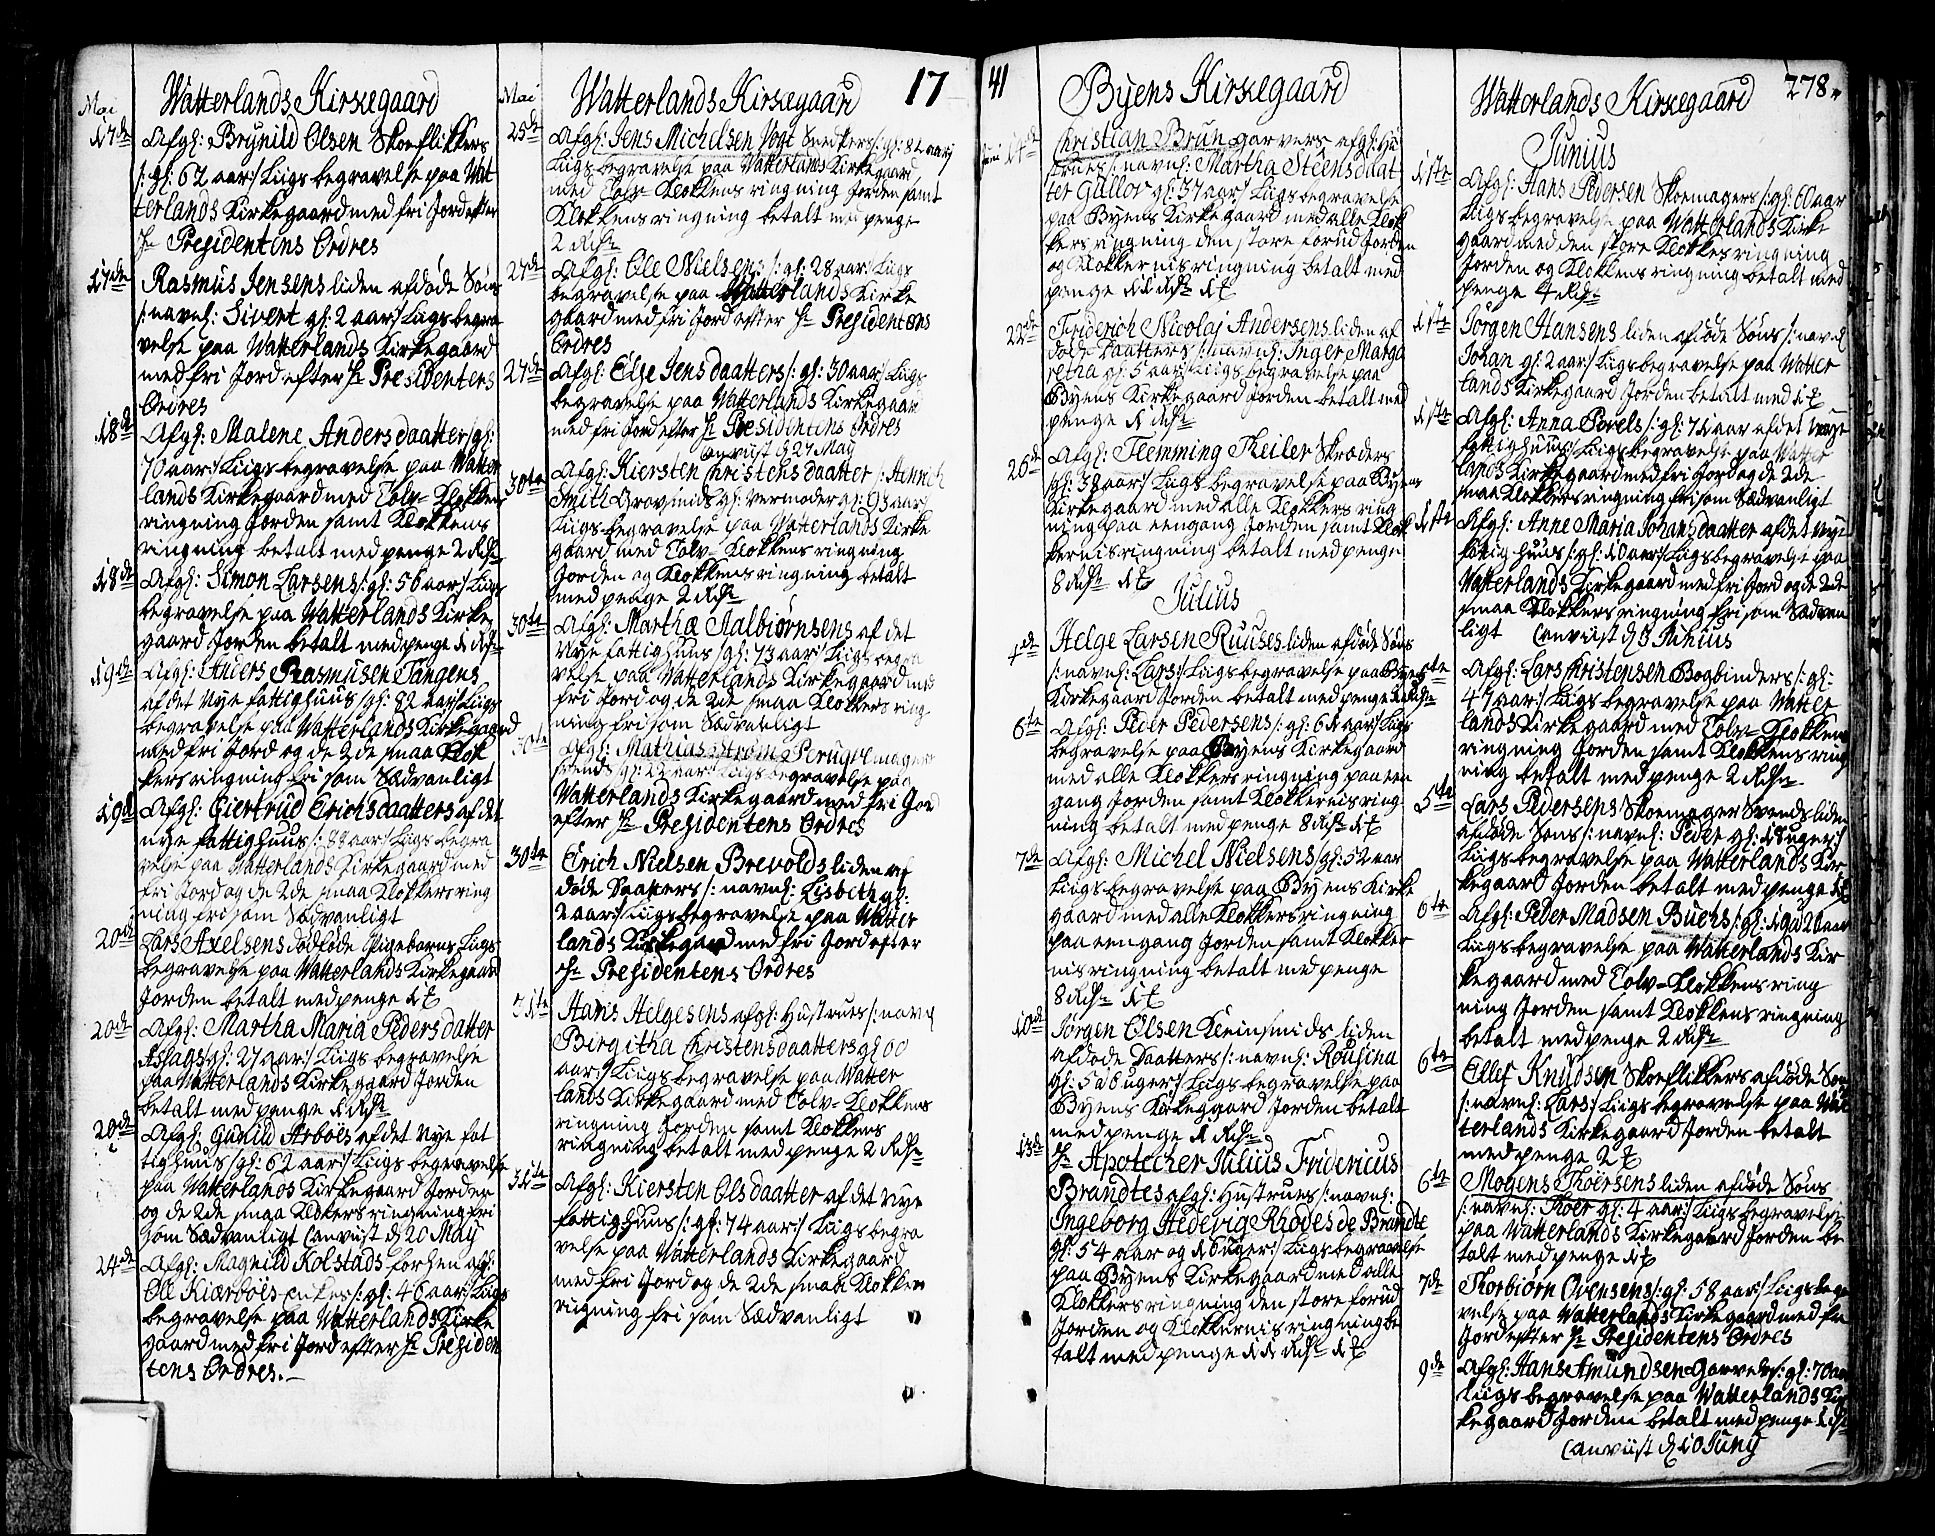 Mai
Watterlands Kirkegaard
17de Afgl: Brynild Olsen Skoeflikkers
/: gl: 62 aar:/ Liigs begravelse paa Wat
terlands Kirkegaard med fri Jord efter
Hr Presidentens Ordres
17de Rasmus Jensens liden afdøde Søns
/: navnl: Sivert gl: 2 aar:/ Liigs begra
velse paa Watterlands Kirkegaard
med fri Jord efter Hr Presidentens
Ordres
18de Afgl: Malene Anders daatter /: gl:
70 aar:/ Liigs begravelse paa Watter
lands Kirkegaard med Tolv-Klokkens
ringning Jorden samt Klokkens
ringning betalt med penge 2 Rdr
18de Afgl: Simon Larsens /: gl: 56 aar:/ Liigs
begravelse paa Watterlands Kirke
gaard Jorden betalt med penge 1 Rdr
19de Afgl: Anders Rasmusen Tangens
af det Nye fattighuus /: gl: 82 aar:/ Liigs
begravelse paa Watterlands Kirkegaard
med fri Jord og de 2de smaa Klok
kers ringning fri som Sædvanligt
19de Afgl: Giertrud Erichsdaatters af det
nye fattighuus /: 88 aar:/ Liigs begra
velse paa Watterlands Kirkegaard med
fri Jord og de 2de smaa Klokkers ring
ning fri som Sædvanligt
20de Lars Axelsens dødføde Pigebarns Liigs
begravelse paa Watterlands Kirkegaard
Jorden betalt med penge 1 ț
20de Afgl: Martha Maria Pedersdatter
/: gl: 27 aar:/ Liigs begravelse
paa Watterlands Kirkegaard Jorden
betalt med penge 1 Rdr
20de Afgl: Gunild Arboes af det Nye fat
tighuus /: gl: 62 aar:/ Liigs begravelse
paa Watterlands Kirkegaard Jorden
og de 2de smaa Klokkers ringning fri
som Sædvanligt Canviist d 20 May
24de Afgl: Magnild Kolstads forhen afgl:
Oll Kiærboes enkes /: gl: 46 aar:/ Liigs
begravelse paa Watterlands Kirke
gaard med fri Jord efter Hr Presiden
tens Ordres.
Mai
Watterlands Kirkegaard 17
25de Afgl: Jens Michelsen Vogt Snedkers /: gl: 82 aar:/
Liigs begravelse paa Watterlands Kirkegaard
med Tolv-Klokkens ringning Jorden samt
Klokkens ringning betalt med penge
2 Rdr
27de Afgl: Ole Nielsens /: gl: 28 aar:/ Liigs
begravelse paa Watterlands Kirke
gaard med fri Jord efter Hr Presidentens
Ordres
27de Afgl: Else Jens daatters /: gl: 30 aar:/ Liigs
begravelse paa Watterlands Kirkegaard
med fri Jord efter Hr Presidentens Ordres
Canviist d 27 May
30te Afgl: Kiersten Christens daatter /: Hennich
Smitt Grovsmids gl: Vermoder gl: 93 aar:/
Liigs begravelse paa Watterlands Kirke
gaard med Tolv-Klokkens ringning
Jorden og Klokkens ringning betalt
med penge 2 Rdr
30te Afgl: Martha Aalbiørnsens af det
Nye fattighuus /: gl: 73 aar:/ Liigs begra
velse paa Watterlands Kirkegaard med
fri Jord og de 2de smaa Klokkers ring
ning fri som Sædvanligt
30te Afgl: Mathias Strøms Peruqvemager
svends /: gl: 22 aar:/ Liigs begravelse paa
Watterlands Kirkegaard med fri Jord
efter Hr Presidentens Ordres
30te Erich Nielsen Brevolds liden af
døde Daatters /: navnl: Lisbeth gl:
2 aar:/ Liigs begravelse paa Watter
lands Kirkegaard med fri Jord efter
Hr Presidentens Ordres
31te Hans Helgesens afgl: Hustrues /: navnl
Birgitha Christensdaatters gl 60
aar:/ Liigs begravelse paa Watter
lands Kirkegaard med Tolv-Klokkens
ringning Jorden samt Klokkens
ringning betalt med penge 2 Rdr
31te Afgl: Kiersten Olsdaatter af det Nye
fattighuus /: gl: 74 aar:/ Liigs begra
velse paa Watterlands Kirkegaard
med fri Jord og de 2de smaae Klokker
ringning fri som Sædvanligt
41 Byens Kirkegaard
Juni 14de Christian Brun Garvers afgl: Hu
strues /: navnl: Martha Steensdaat
ter Gullov gl: 37 aar:/ Liigs begravelse
paa Byens Kirkegaard med alle Klok
kers ringning den store forud Jorden
og Klokkernis ringning betalt med
penge 11 Rdr 1 ț
22de Friderich Nicolaj Andersens liden af
døde Daatters /: navnl: Inger Marga
retha gl: 5 aar:/ Liigs begravelse paa
Byens Kirkegaard Jorden betalt med
penge 1 Rdr
26de Afgl: Flemming Theiler Skræders
/: gl: 38 aar:/ Liigs begravelse paa Byens
Kirkegaard med alle Klokkers ring
ning paa eengang Jorden samt Klok
kernis ringning betalt med penge
8 Rdr 1 ț
Julius
1de Helge Larsen Ruuses liden afdøde Søns
/: navnl: Lars:/ Liigs begravelse paa Byens
Kirkegaard Jorden betalt med penge 1 Rdr
6te Afgl: Peder Pedersens /: gl: 61 aar:/ Liigs
begravelse paa Byens Kirkegaard
med alle Klokkers ringning paa een
gang Jorden samt Klokkernis ring
ning betalt med penge 8 Rdr 1 ț
7de Afgl: Michel Nielsens /: gl: 52 aar
Liigs begravelse paa Byens Kirke
gaard med alle Klokkers ringning
paa eengang Jorden samt Klokker
nis ringning betalt med penge
8 Rdr 1 ț
10de Jørgen Olsen Kleinsmids liden
afdøde Daatters /: navnl: Rousina
gl: 5 a 6 uger:/ Liigs begravelse paa
Byens Kirkegaard Jorden betalt
med penge 1 Rdr
13de Hr Apotecher Julius Fridericus
Brandtes afgl: Hustrues /: navnl:
Ingeborg Hedevig Rhodes de Brandte
gl: 54 aar og 16 uger:/ Liigs begravelse
paa Byens Kirkegaard med alle
Klokkers ringning den store forud
Jorden og Klokkernis ringning be
talt med penge 11 Rdr 1 ț
Watterlands Kirkegaard 278
Junius
1ste Afgl: Hans Pedersen Skoemagers /: gl: 60 aar
Liigs begravelse paa Watterlands Kirke
gaard med den store Klokkens ringning
Jorden og Klokkens ringning betalt med
penge 4 Rdr
1ste Jørgen Hansens liden afdøde Søns /: navnl
Johan gl: 2 aar:/ Liigs begravelse paa Watter
lands Kirkegaard Jorden betalt med 1 ț
1ste Afgl: Anna Povels /: gl: 71 aar af det
fattighuus:/ Liigs begravelse paa Watter
lands Kirkegaard med fri Jord og de 2de
smaa Klokkers ringning fri som Sædvanligt
1ste Afgl: Anne Maria Johansdaatter af det Nye
fattighuus /: gl: 10 aar:/ Liigs begravelse paa
Watterlands Kirkegaard med fri Jord og de 2de
smaa Klokkers ringning fri som Sædvan
ligt Canviist d 3 Junius
5te Afgl: Lars Christensen Bogbinders /: gl:
47 aar:/ Liigs begravelse paa Watter
lands Kirkegaard med Tolv-Klokkens
ringning Jorden samt Klokkens ring
ning betalt med penge 2 Rdr
5te Lars Pedersens Skoemager Svends liden
afdøde Søns /: navnl: Peder gl: 18 uger:/
Liigs begravelse paa Watterlands Kir
kegaard Jorden betalt med penge 1 ț
6te Afgl: Peder Madsen Buchs /: gl: 19 a 20 aar
Liigs begravelse paa Watterlands Kir
kegaard med Tolv-Klokkens ring
ning Jorden samt Klokkens ringning
betalt med penge 2 Rdr
6te Ellef Knudsen Skoeflikkers afdøde Søn
/: navnl: Lars:/ Liigs begravelse paa Wat
terlands Kirkegaard Jorden betalt
med penge 2 ț
6te Mogens Thoersens liden afdøde Søns
/: navnl: Thoer gl: 4 aar:/ Liigs begravelse
paa Watterlands Kirkegaard Jorden be
talt med penge 1 ț
7de Thorbiørn Ovensens /: gl: 58 aar:/ Liigs begra
velse paa Watterlands Kirkegaard med fri
Jord efter Hr Presidentens Ordres
9de Afgl: Hans Amundsen Garvels /: gl: 70 aar
Liigs begravelse paa Watterlands Kir
kegaard Jorden betalt med penge 1 Rdr
Canviist d 10 Junij